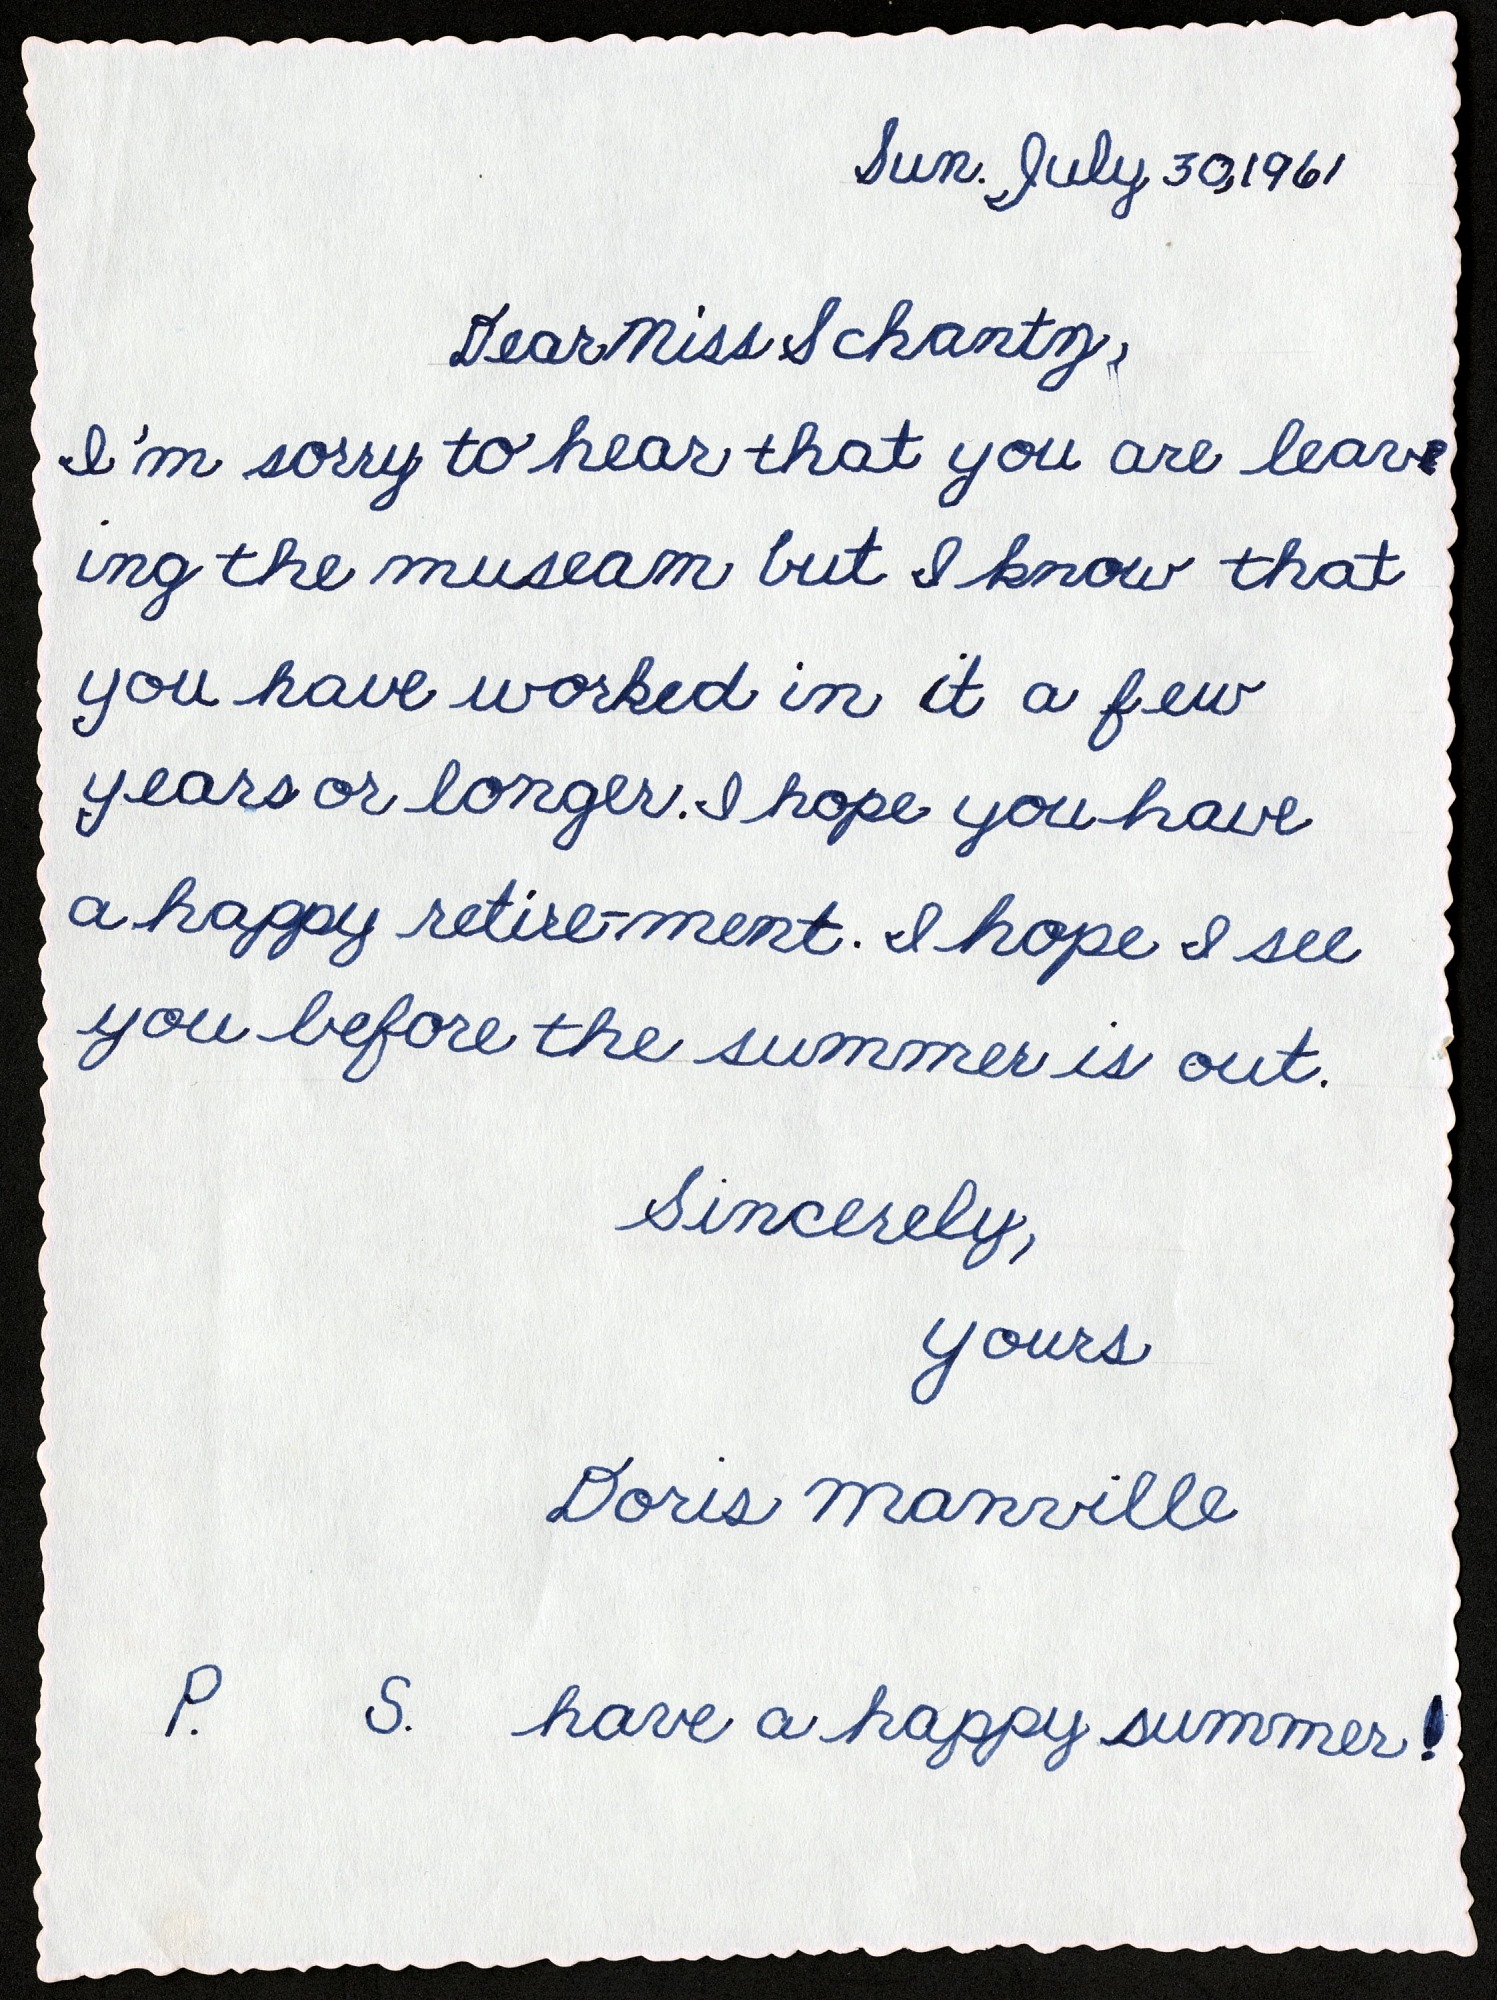 Sun. July 30, 1961
Dear Miss Schantz,
I'm sorry to hear that you are leave
ing the museam but I know that
you have worked in it a few
years or longer. I hope you have
a happy retire-ment. I hope I see
you before the summer is out.
Sincerely,
yours
Doris Manville
P. S. have a happy summer!